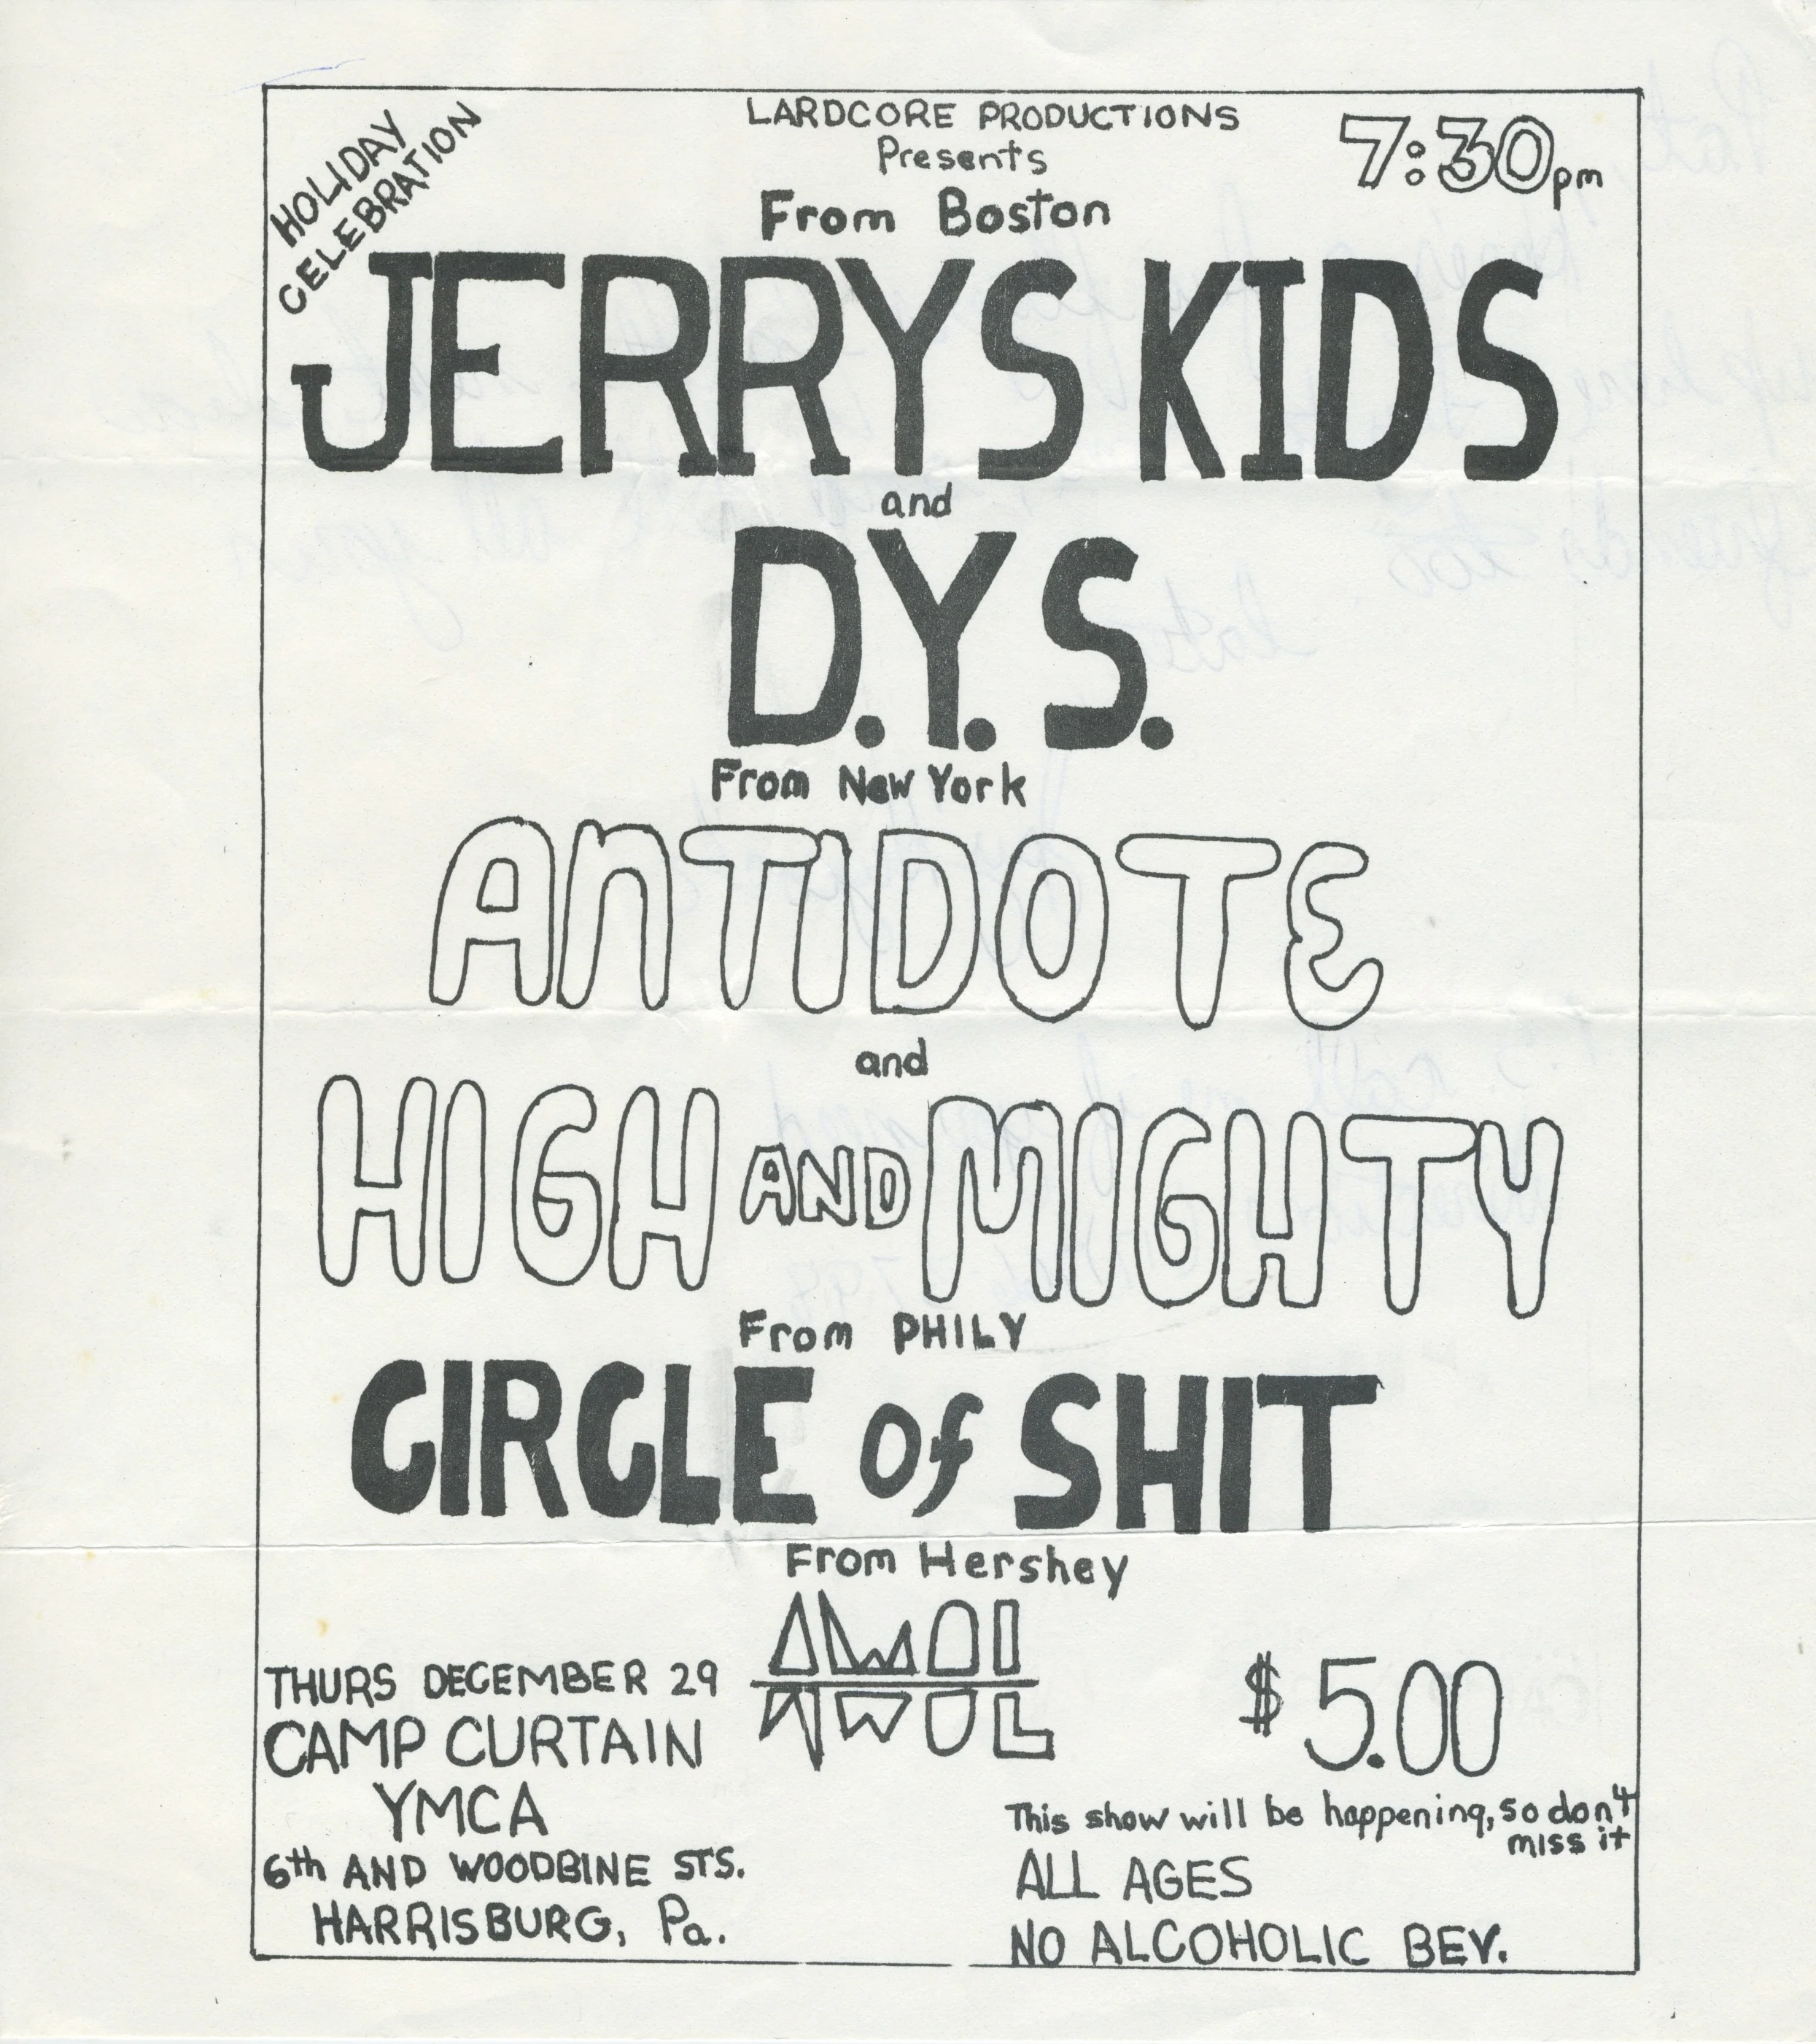 HOLIDAY
CELEBRATION
LARDCORE PRODUCTIONS
Presents
7:30pm
From Boston
JERRYS KIDS
and
D.Y.S.
From New York
ANTIDOTE
and
HIGH AND MIGHTY
From PHILY
CIRCLE of SHIT
From Hershey
AWOL
AWOL
THURS DECEMBER 29
CAMP CURTAIN
YMCA
6th AND WOODBINE STS.
HARRISBURG, Pa.
$5.00
This show will be happening, so don't
miss it
ALL AGES
NO ALCOHOLIC BEV.